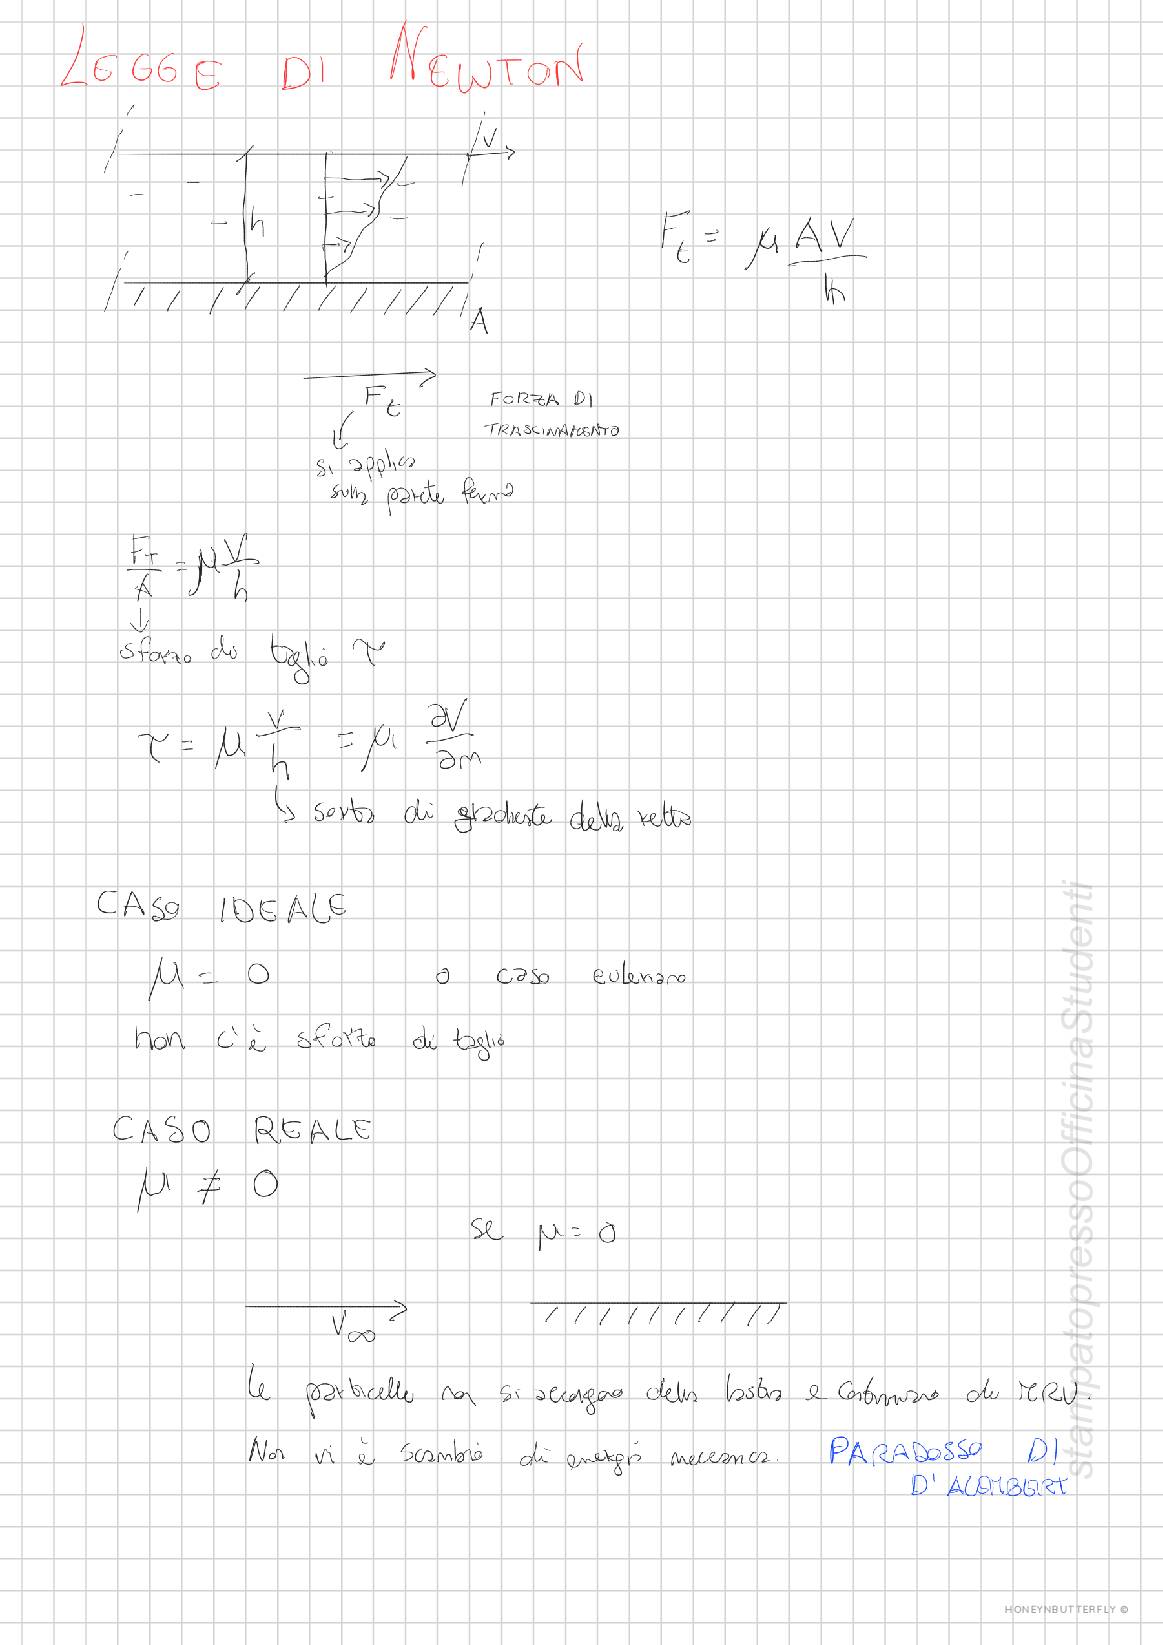 LEGGE DI NEWTON
V
h
A
F_t = μ AV/h
F_t
FORZA DI
TRASCINAMENTO
si applica
sulla parete ferma
F_T/A = μ V/h
sforzo di taglio τ
τ = μ v/h = μ ∂V/∂n
sorta di gradiente della retta
CASO IDEALE
μ = 0 o caso euleriano
non c'è sforzo di taglio
CASO REALE
μ ≠ 0
se μ = 0
V∞
le particelle non si accorgono della lastra e continuano di MRU.
Non vi è scambio di energia meccanica. PARADOSSO DI
D'ALEMBERT
stampatopressoOfficinaStudenti
HONEYNBUTTERFLY ©